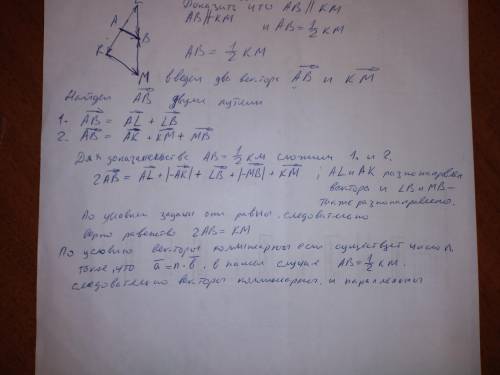 Доказать что AB || KM
AB || KM и AB = 1/2 KM
L
A
B
K
M
AB = 1/2 KM
введем два вектора AB и KM
Найдем AB двумя путями
1. AB = AL + LB
2. AB = AK + KM + MB
Для доказательства AB = 1/2 KM сложим 1. и 2.
2AB = AL + |-AK| + LB + |-MB| + KM ; AL и AK разнонаправлен
вектора и LB и MB -
тоже разнонаправлено.
По условию задачи они равны. следовательно
верно равенство 2AB = KM
По условию векторы коллинеарны если существует число n
такое, что a = n · b, в нашем случае AB = 1/2 KM.
следовательно векторы коллинеарны и параллельны